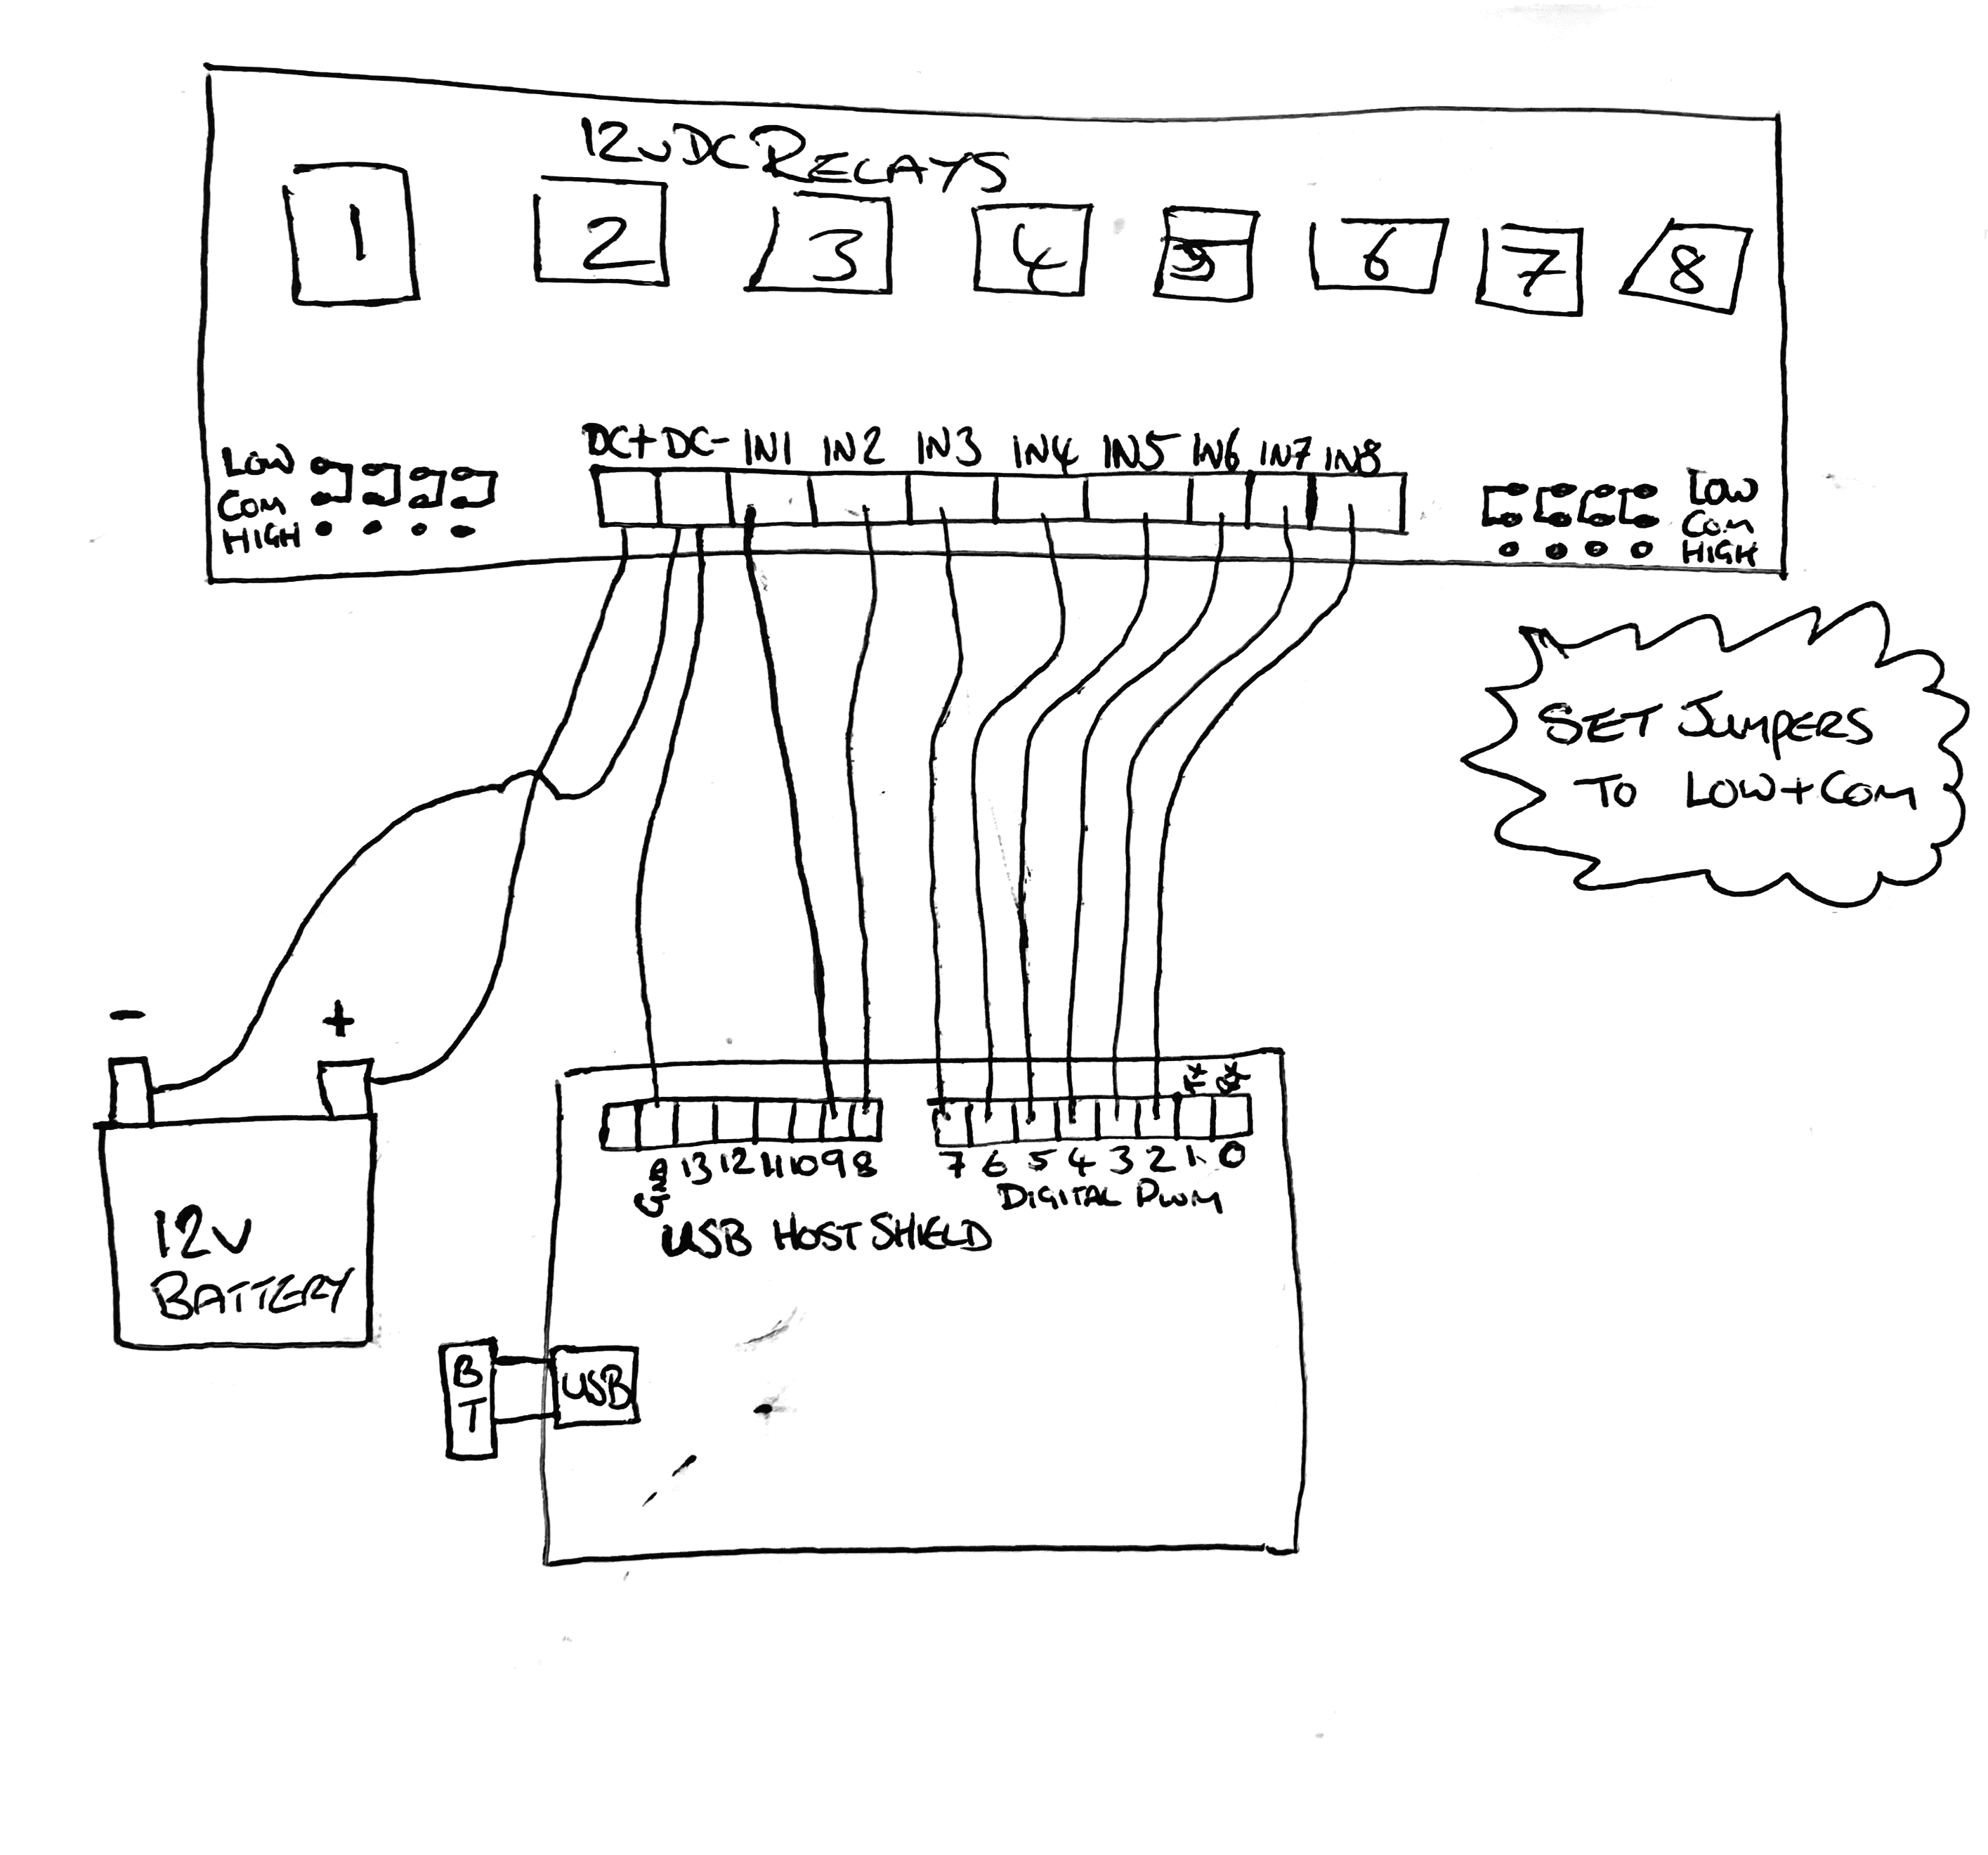 12v DC RELAYS
1 2 3 4 5 6 7 8
DC+ DC- IN1 IN2 IN3 IN4 IN5 IN6 IN7 IN8
LOW
COM
HIGH
LOW
COM
HIGH
SET JUMPERS
TO LOW+COM
- +
12V
BATTERY
GND 13 12 11 10 9 8 7 6 5 4 3 2 1 0
DIGITAL PWM
USB HOST SHIELD
B
T
USB